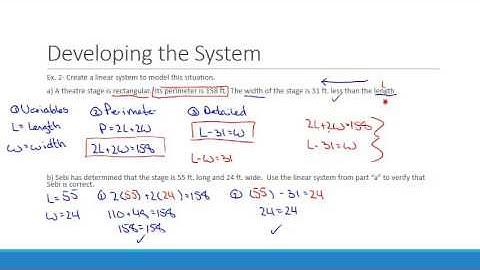 Developing the System
Ex. 2- Create a linear system to model this situation.
a) A theatre stage is rectangular. Its perimeter is 158 ft. The width of the stage is 31 ft. less than the length.
L
① Variables
L = Length
W = Width
② Perimeter
P = 2L+2W
2L+2W=158
③ Detailed
L-31=W
L-W=31
2L+2W=158
L-31=W
b) Sebi has determined that the stage is 55 ft. long and 24 ft. wide. Use the linear system from part "a" to verify that
Sebi is correct.
L=55
W=24
① 2(55)+2(24)=158
110+48=158
158=158
② (55)-31=24
24=24